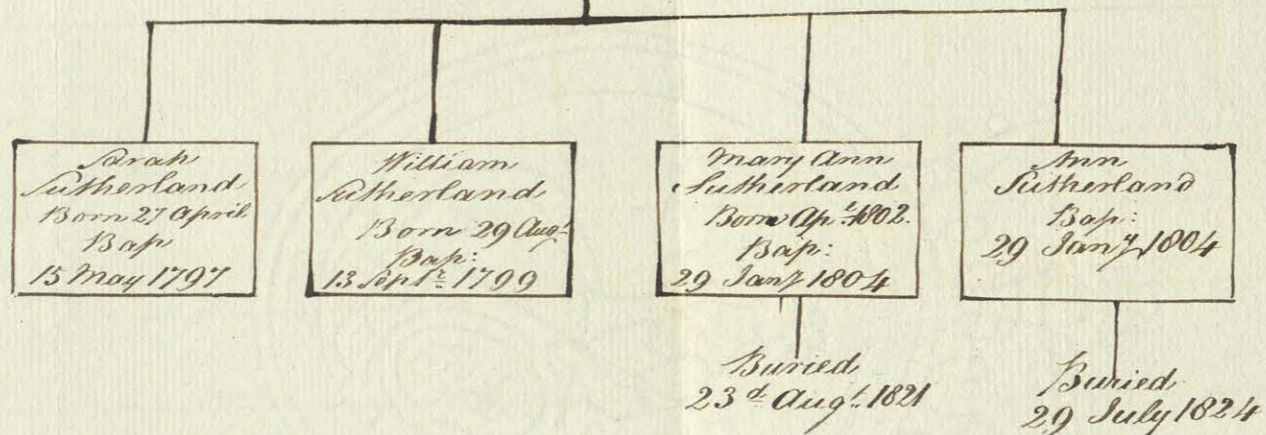 Sarah
Sutherland
Born 27 April
Bap
15 May 1797
William
Sutherland
Born 29 Augt
Bap:
13 Septr. 1799
Mary Ann
Sutherland
Born Apl. 1802.
Bap:
29 Jany 1804
Buried
23d. Augt. 1821
Ann
Sutherland
Bap:
29 Jany 1804
Buried
29 July 1824